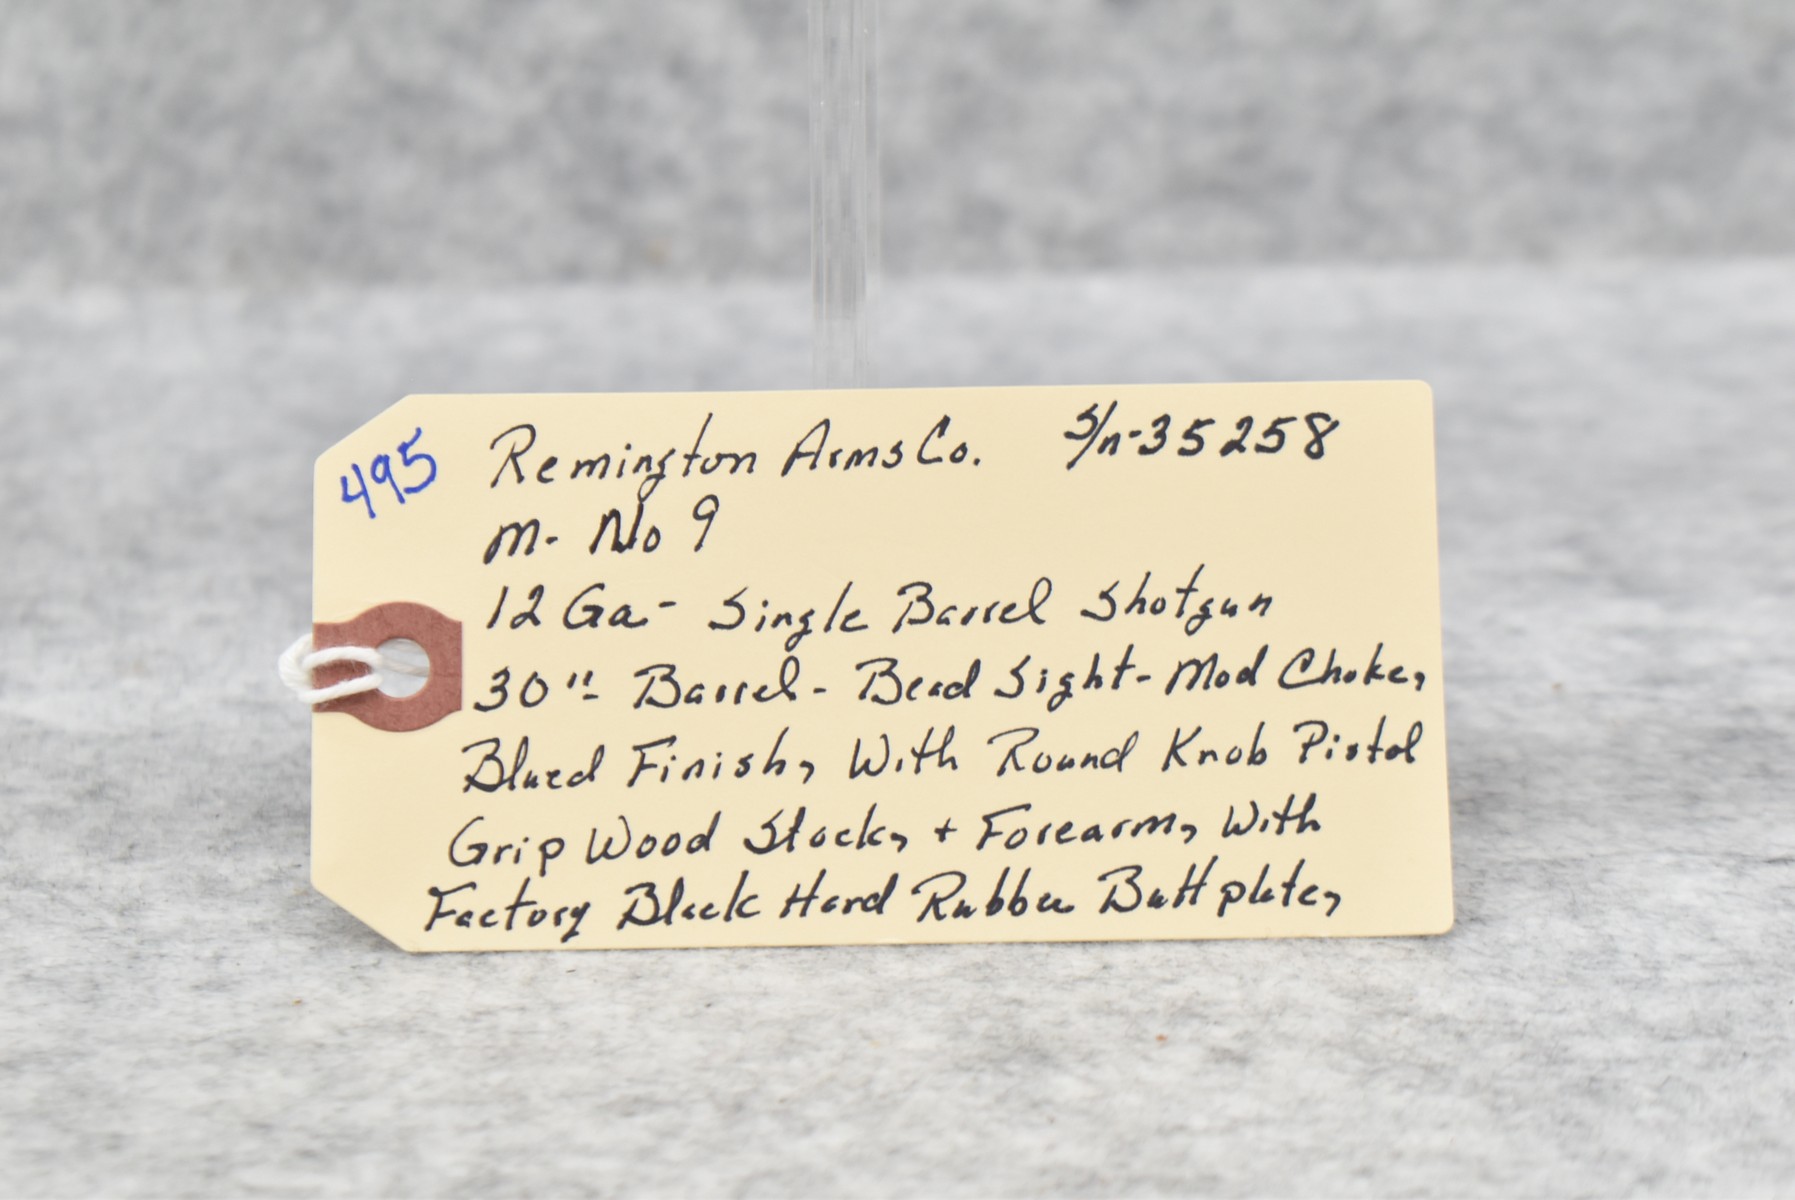 495
Remington Arms Co. S/n-35258
M- No 9
12 Ga- Single Barrel Shotgun
30"- Barrel- Bead Sight- Mod Choke,
Blued Finish, With Round Knob Pistol
Grip Wood Stock, + Forearm, With
Factory Black Hard Rubber Buttplate,